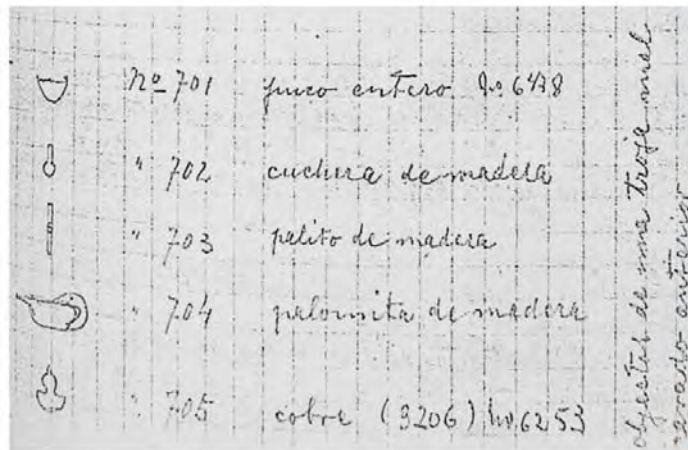 Nº 701 puco entero No
" 702 cuchara de madera
" 703 palito de madera
" 704 palomita de madera
" 705 cobre (3206) No 6253
objectos de una troje
anterior